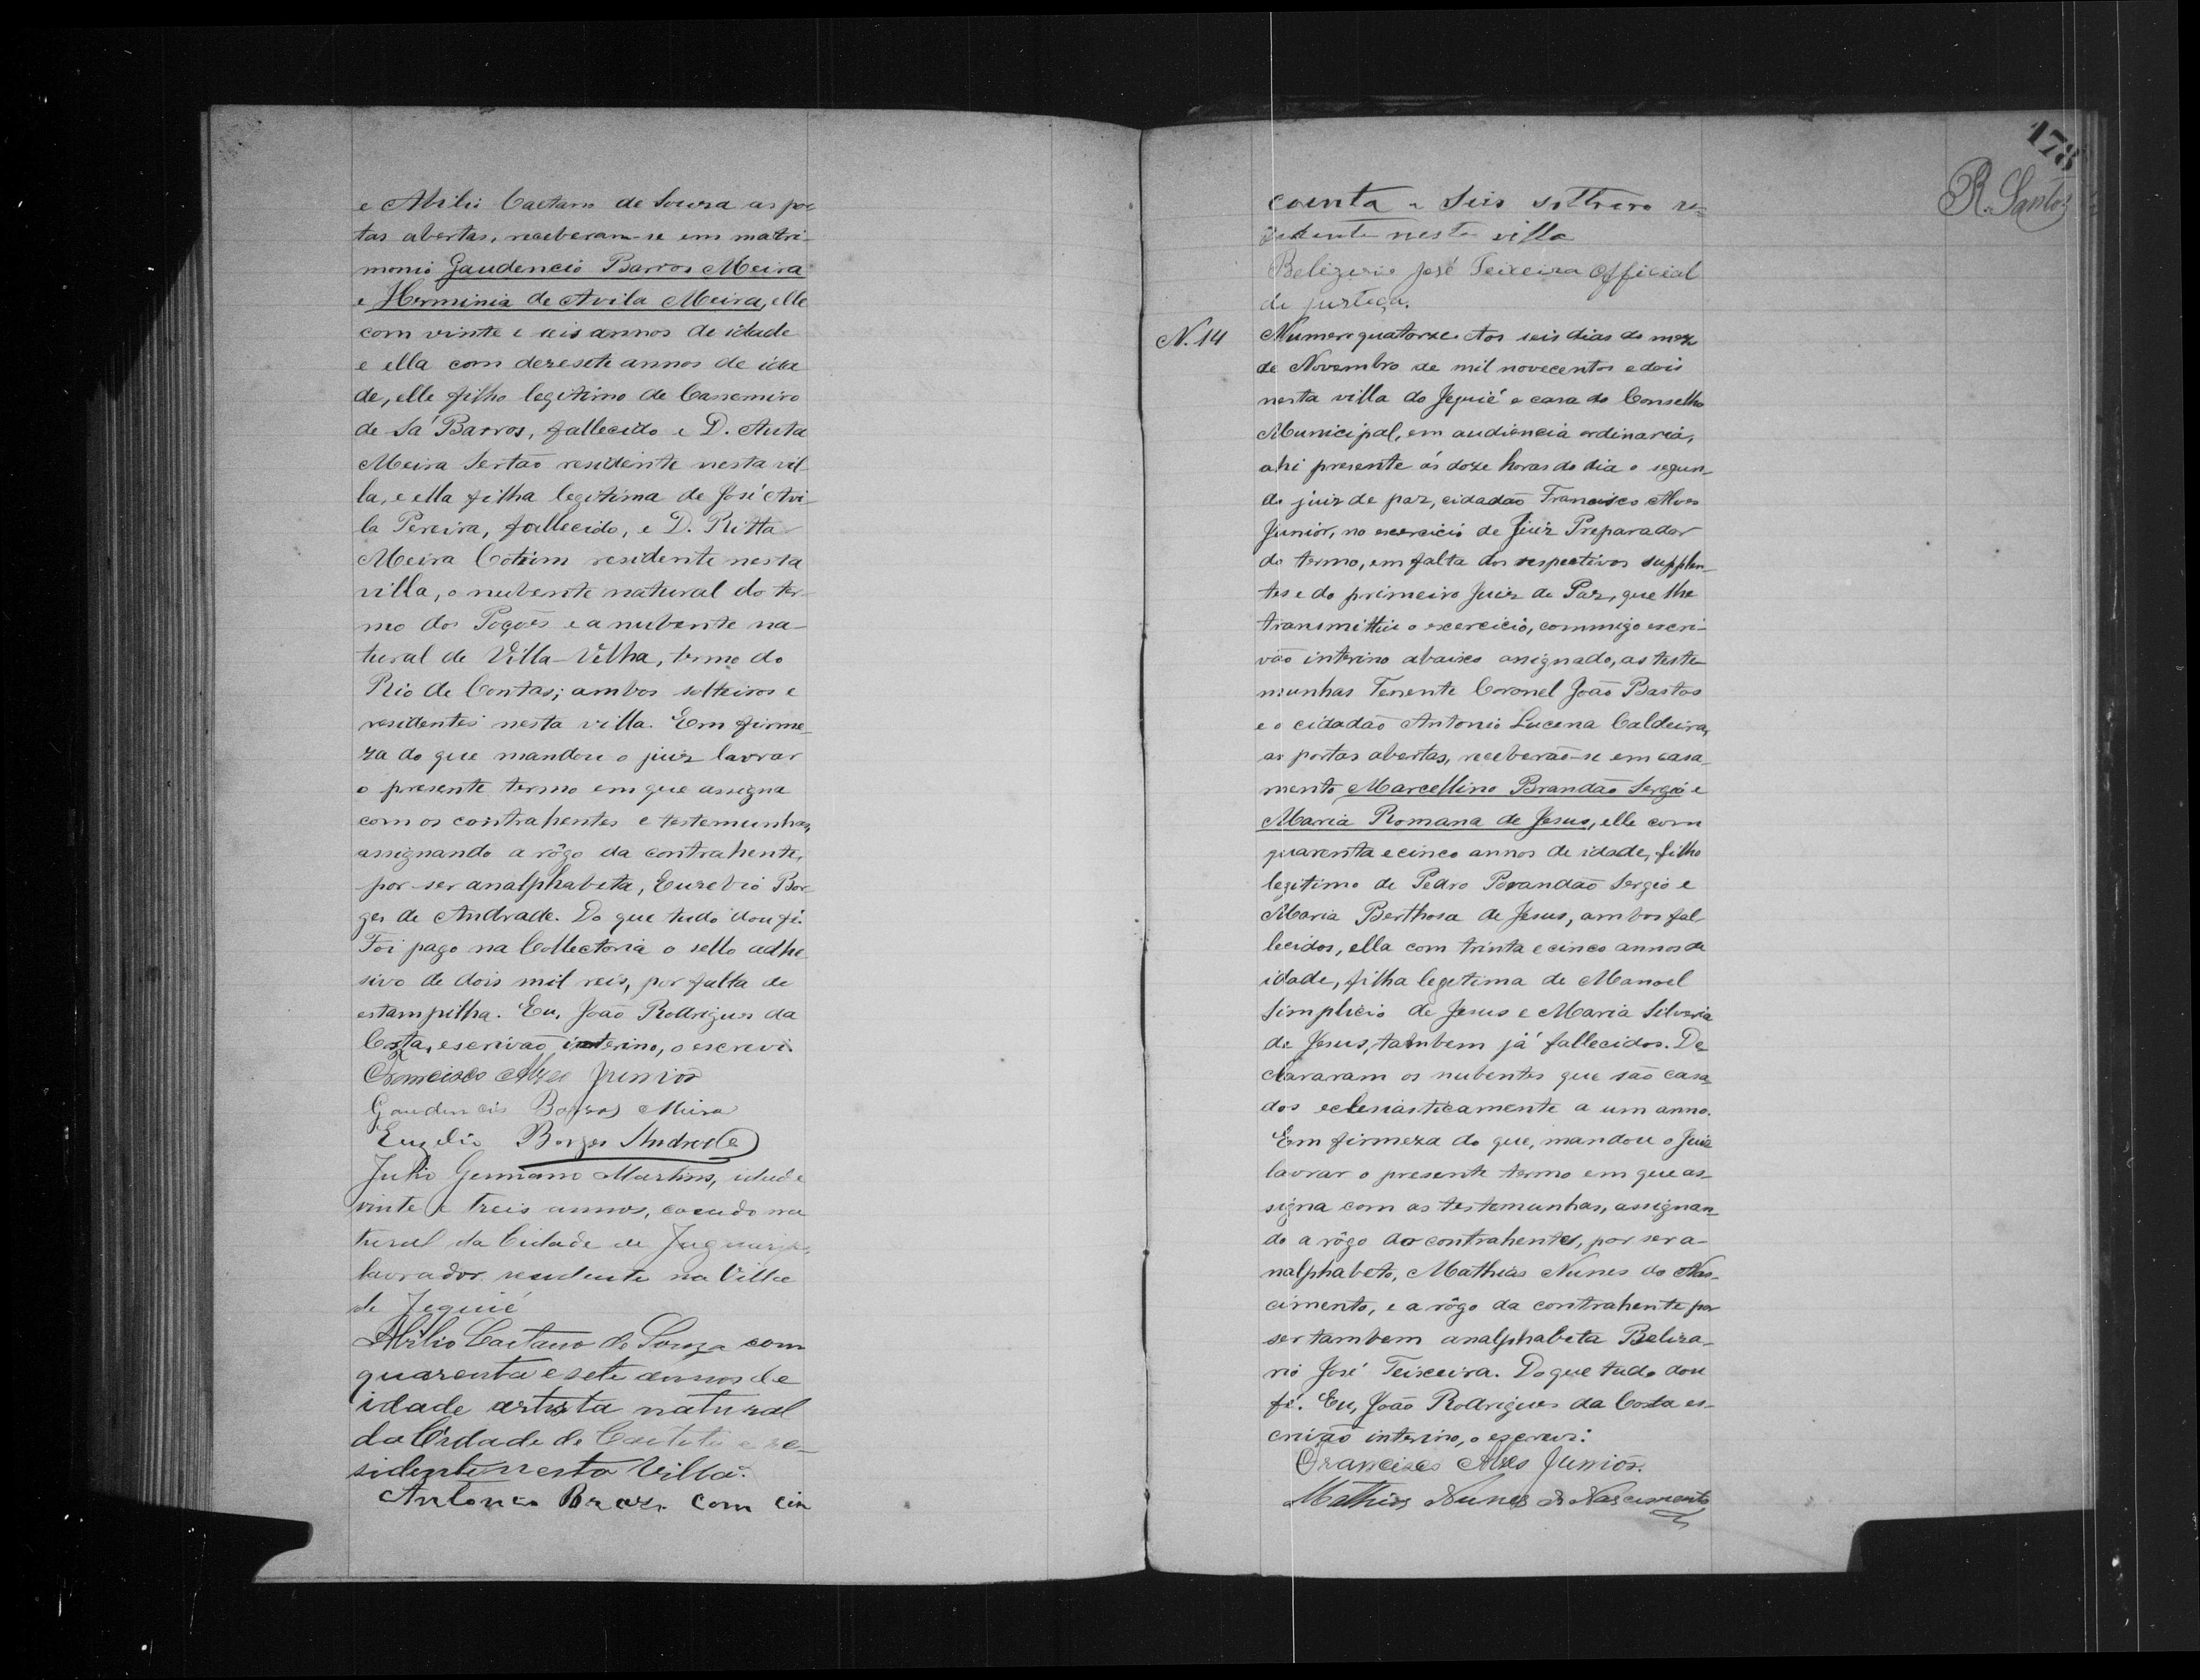 e Abilio Caetano de Souza as por
tas abertas, receberam-se em matri-
monio Gaudencio Barros Meira
e Herminia de Avila Meira, elle
com vinte e seis annos de idade
e ella com dezesete annos de ida
de, elle filho legitimo de Cassemiro
de Sá Barros, fallecido e D. Auta
Meira Sertão residente nesta vil
la, e ella filha legitima de José Avi-
la Pereira, fallecido, e D. Ritta
Meira Cotrim residente nesta
villa, o nubente natural do ter-
mo dos Poções e a nubente na-
tural de Villa-Velha, termo do
Rio de Contas; ambos solteiros e
residentes nesta villa. Em firme-
za do que mandou o juiz lavrar
o presente termo em que assigna
com os contrahentes e testemunhas,
assignando a rôgo da contrahente,
por ser analphabeta, Euzebio Bor-
ges de Andrade. Do que tudo dou fé.
Foi pago na Collectoria o sello adhe
sivo de dois mil reis, por falta de
estampilha. Eu, João Rodrigues da
Costa, escrivão interino, o escrevi.
Francisco Alves Junior
Gaudencio Barros Meira
Euzebio Borges Andrade
Julio Germano Martins, idade
vinte e treis annos, casado na
tural da Cidade de
lavrador residente na Villa
de Jequié
Abilio Caetano de Souza com
quarenta e sete annos de
idade artista natural
da Cidade de Caeteté e re-
sidente nesta Villa.
Antonio Braz com cin
178
R. Santos
coenta e seis solteiro re-
zidente nesta villa
Belizario José Teixeira Official
de justiça.
N. 14
Numero quatorze. Aos seis dias do mez
de Novembro de mil novecentos e dois
nesta villa do Jequié e casa do Conselho
Municipal, em audiencia ordinaria,
ahi presente ás doze horas do dia o segun-
do juiz de paz, cidadão Francisco Alves
Junior, no exercicio de Juiz Preparador
do termo, em falta dos respectivos supplen-
tes e do primeiro Juiz de Paz, que lhe
transmittiu o exercicio, commigo escri-
vão interino abaixo assignado, as teste-
munhas Tenente Coronel João Bastos
e o cidadão Antonio Lucena Caldeira,
as portas abertas, receberão-se em casa-
mento Marcellino Brandão Sergio e
Maria Romana de Jesus, elle com
quarenta e cinco annos de idade, filho
legitimo de Pedro Brandão Sergio e
Maria Berthosa de Jesus, ambos fal-
lecidos, ella com trinta e cinco annos de
idade, filha legitima de Manoel
Simplicio de Jesus e Maria Silveria
de Jesus, tambem já fallecidos. De
clararam os nubentes que são casa-
dos eclesiasticamente a um anno.
Em firmeza do que, mandou o Juiz
lavrar o presente termo em que as-
signa com as testemunhas, assignan-
do a rôgo do contrahente, por ser a-
nalphabeto, Mathias Nunes do Nas-
cimento, e a rôgo da contrahente por
ser tambem analphabeta Beliza-
rio José Teixeira. Do que tudo dou
fé. Eu, João Rodrigues da Costa es-
crivão interino, o escrevi.
Francisco Alves Junior.
Mathias Nunes do Nascimento